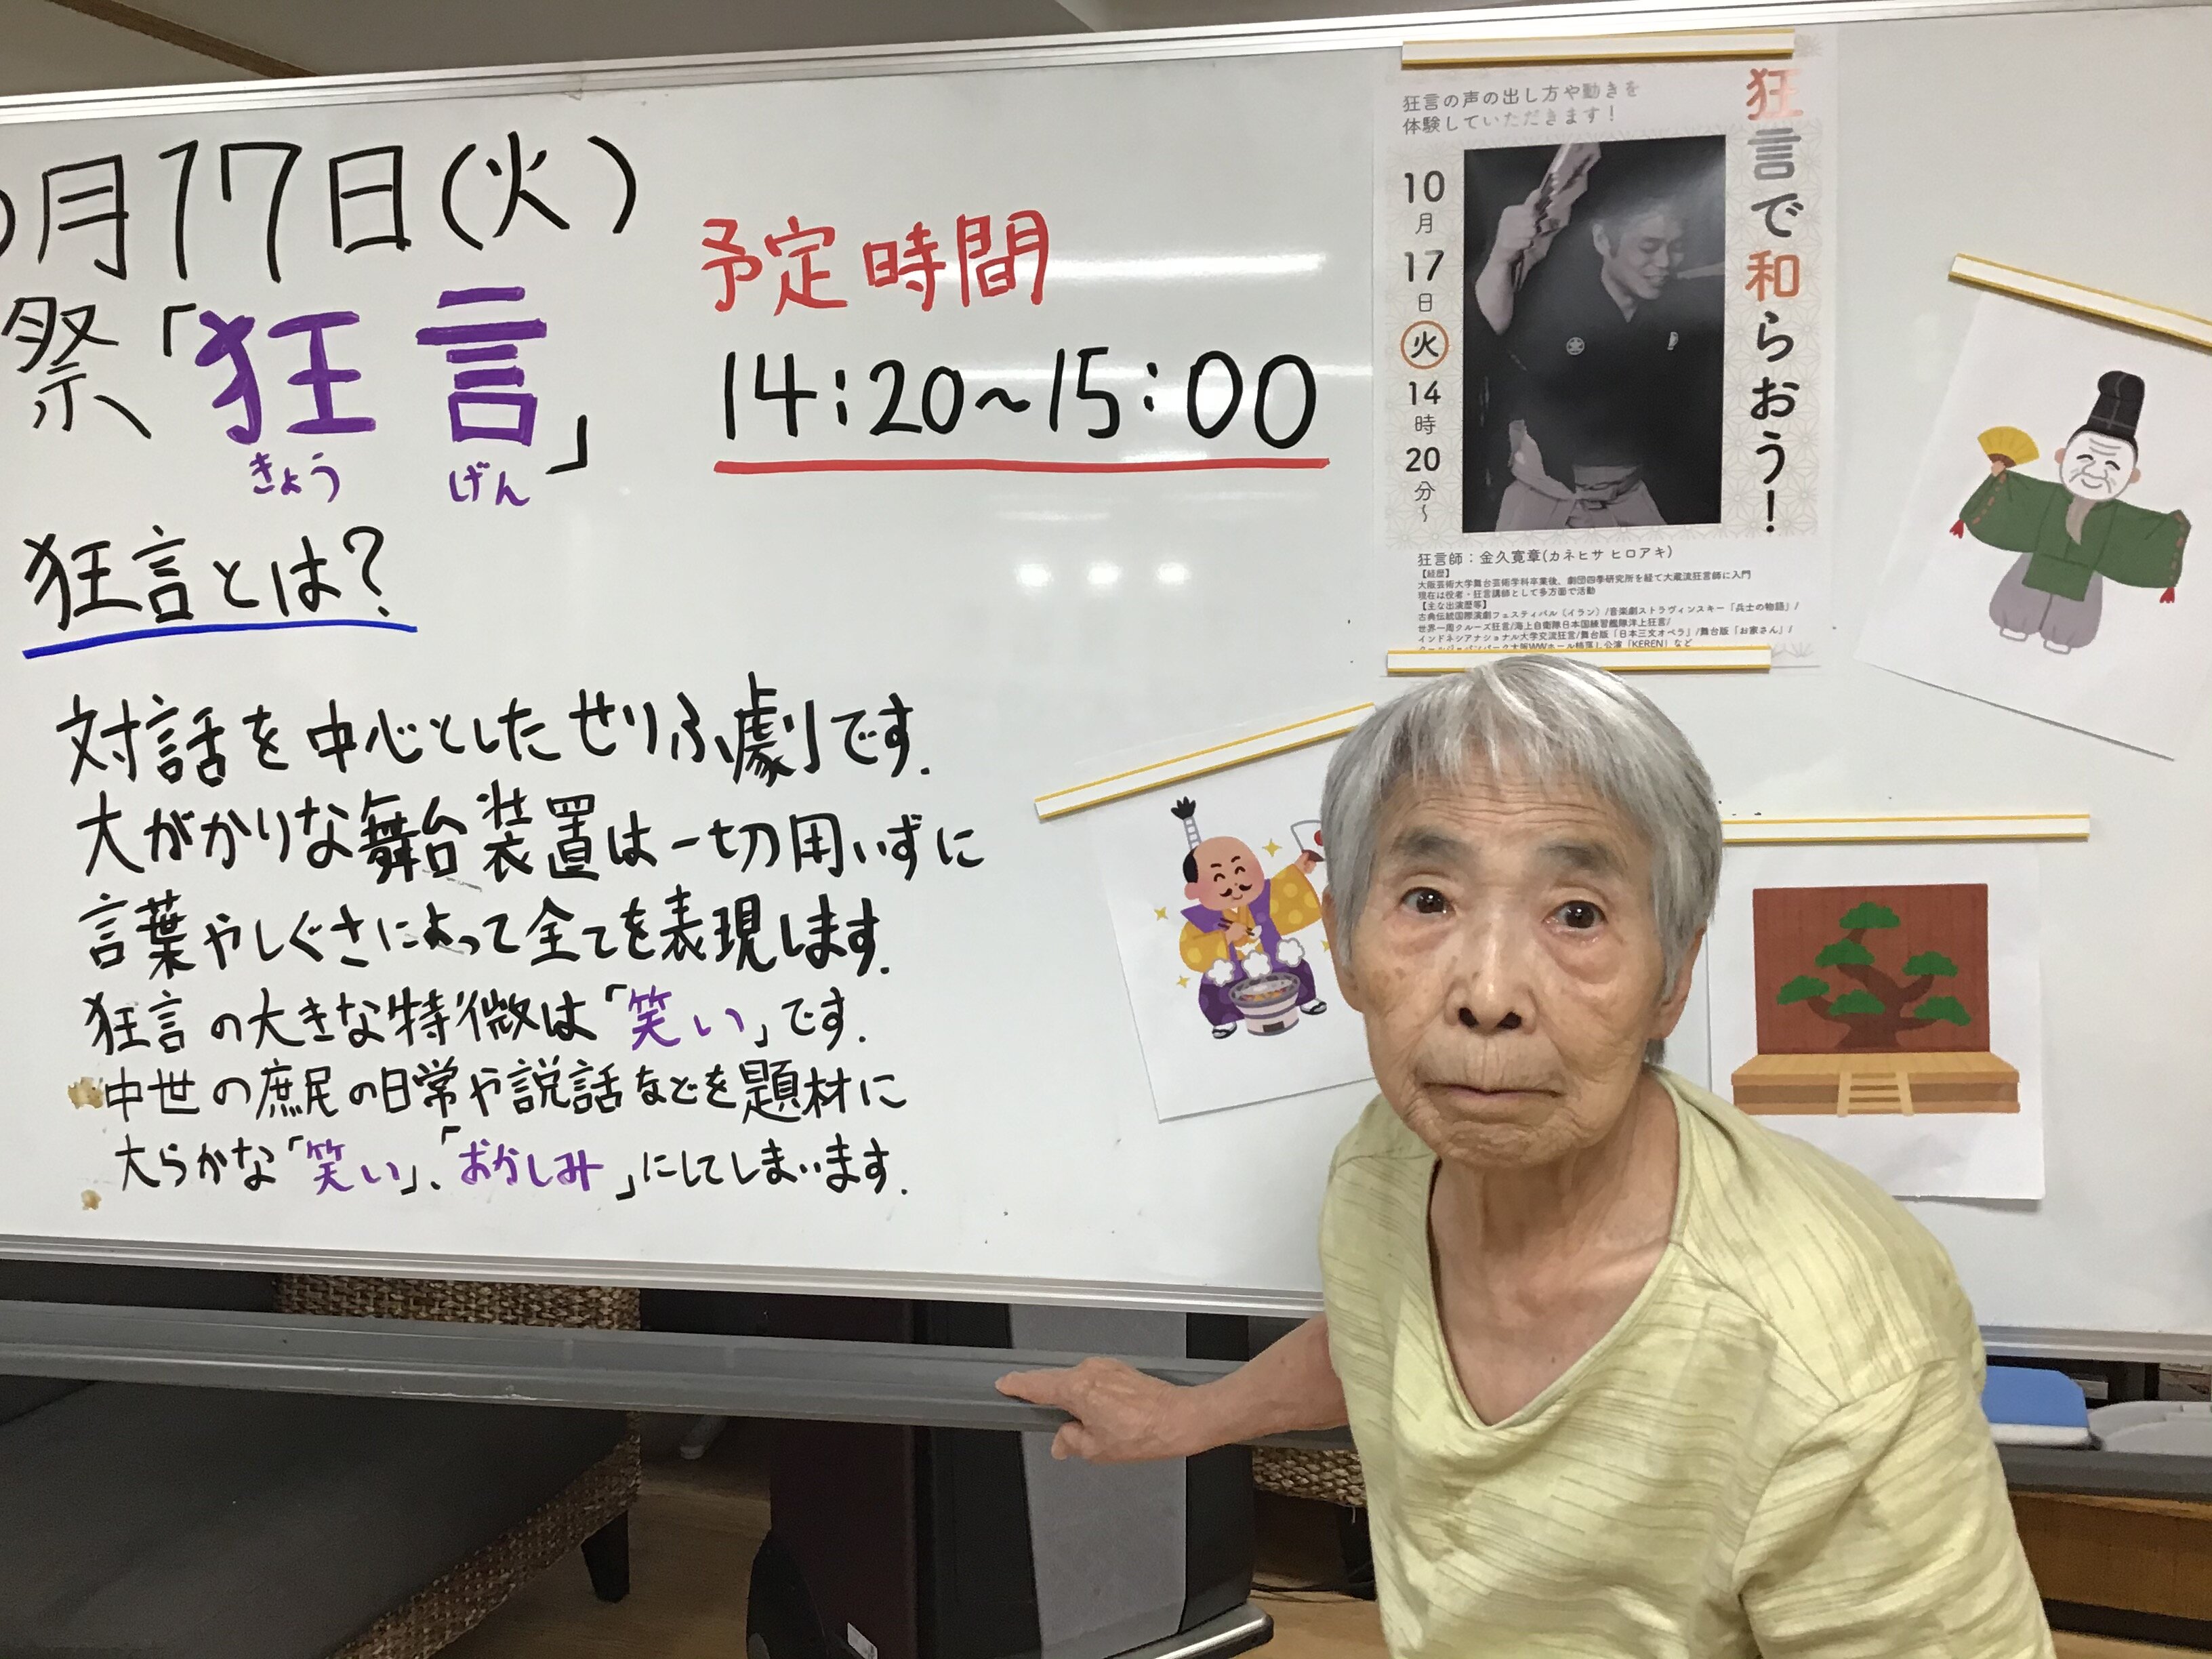 月17日(火)
祭「狂言」
きょう げん
予定時間
14:20～15:00
狂言とは?
対話を中心としたせりふ劇です.
大がかりな舞台装置は一切用いずに
言葉やしぐさによって全てを表現します.
狂言の大きな特徴は「笑い」です.
中世の庶民の日常や説話などを題材に
大らかな「笑い」、「おかしみ」にしてしまいます.
狂言で和らおう!
狂言の声の出し方や動きを
体験していただきます!
10月17日火14時20分~
狂言師:金久寛章(カネヒサ ヒロアキ)
【経歴】
大阪芸術大学舞台芸術学科卒業後、劇団四季研究所を経て大蔵流狂言師に入門
現在は役者・狂言講師として多方面で活動
【主な出演歴等】
古典伝統国際演劇フェスティバル(イラン)/音楽劇ストラヴィンスキー「兵士の物語」/
世界一周クルーズ狂言/海上自衛隊日本国練習艦隊洋上狂言/
インドネシアナショナル大学交流狂言/舞台版「日本三文オペラ」/舞台版「お家さん」/
クールジャパンパーク大阪WWホール杮落し公演「KEREN」など